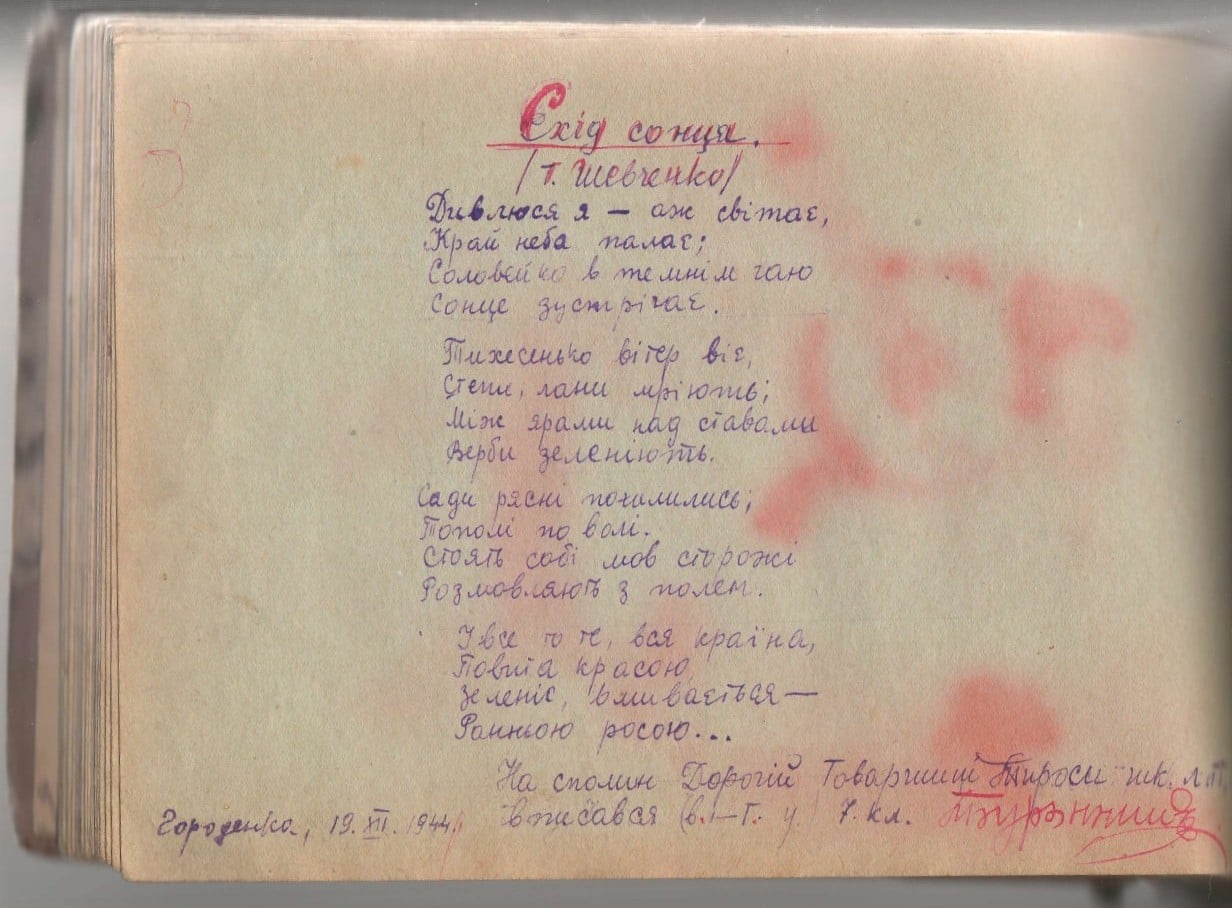 Схід сонця.
/Т. Шевченко/
Дивлюся я — аж світає,
Край неба палає;
Соловейко в темнім гаю
Сонце зустрічає.
Тихесенько вітер віє,
Степи, лани мріють;
Між ярами над ставами
Верби зеленіють.
Сади рясні похилились;
Тополі по волі.
Стоять собі мов сторожі
Розмовляють з полем.
І все то те, вся країна,
Повита красою,
Зеленіє, вмивається —
Ранньою росою...
На спомин Дорогій Товаришці
вписався в. Г. у 7. кл.
Городенка, 19. XII. 1944